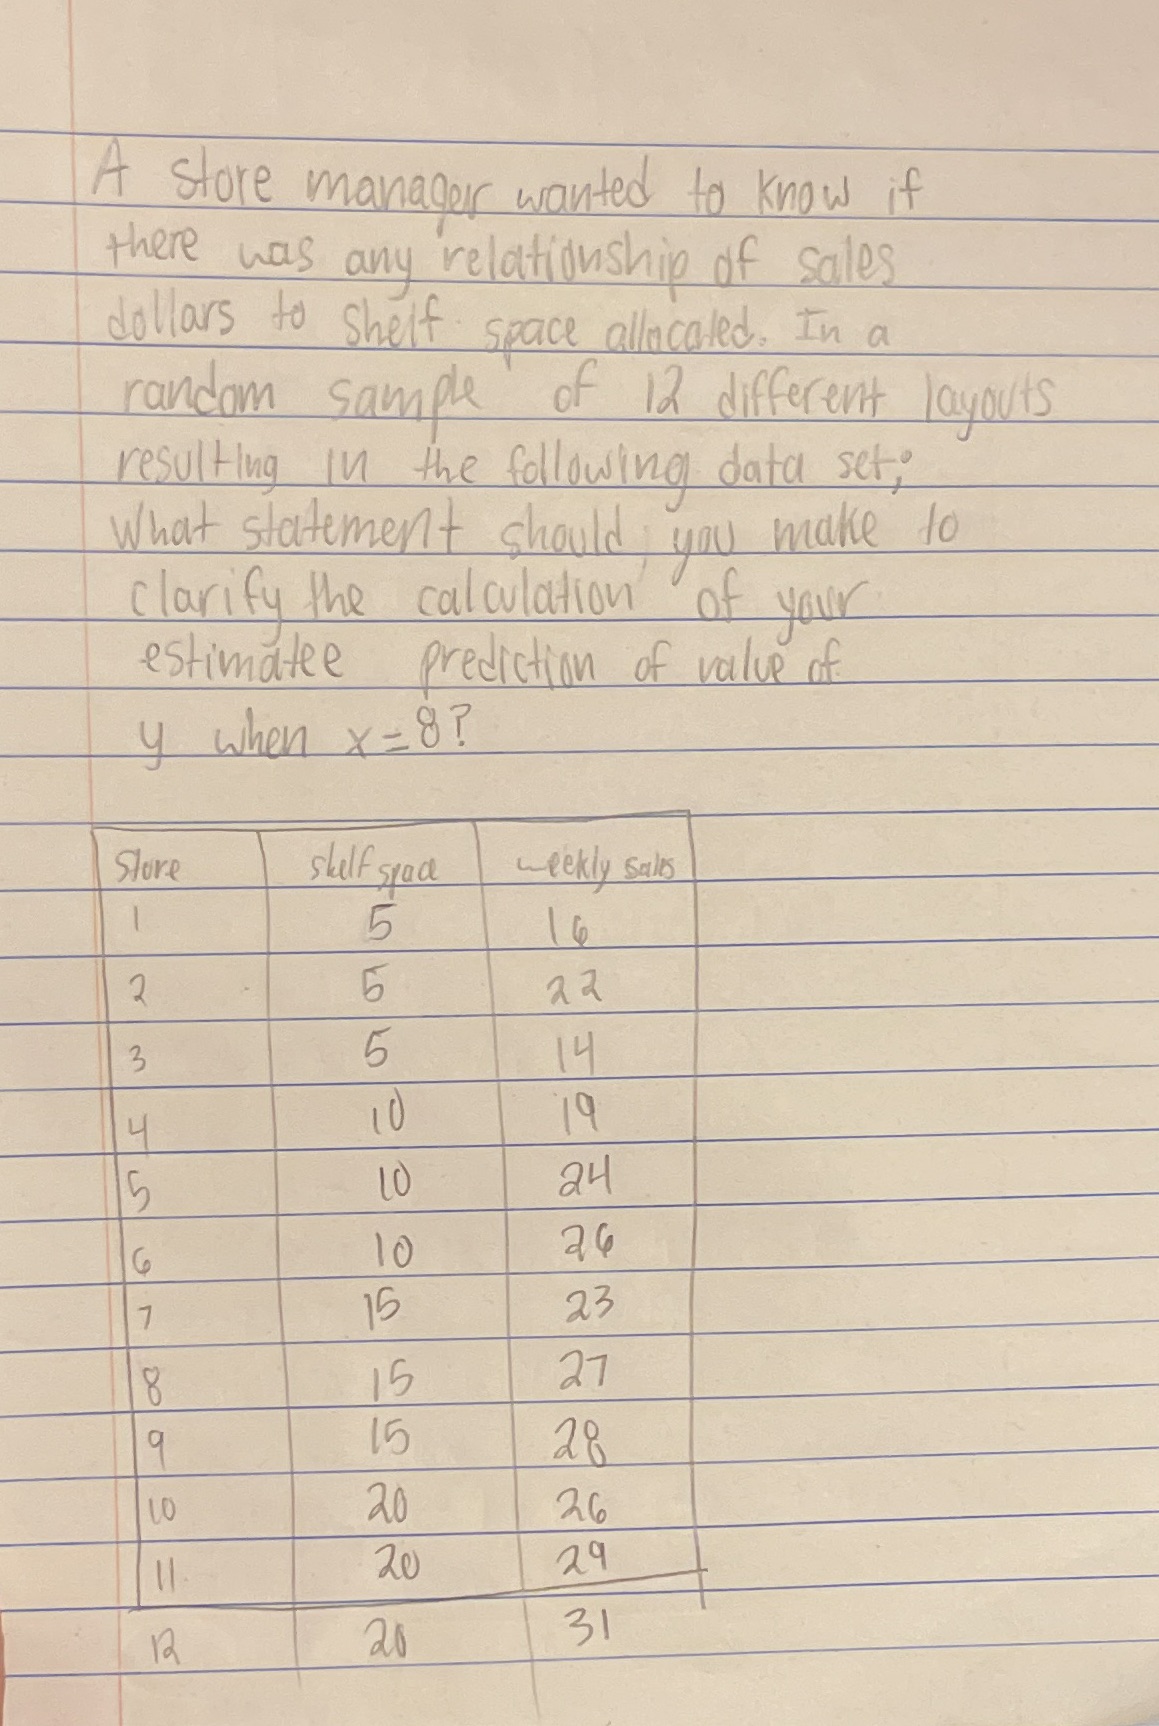 A store manager wanted to know if
there was any relationship of sales
dollars to shelf space allocated. In a
random sample of 12 different layouts
resulting in the following data set;
What statement should you make to
clarify the calculation of your
estimatee prediction of value of
y when x=8?
Store shelf space weekly sales
1 5 16
2 5 22
3 5 14
4 10 19
5 10 24
6 10 26
7 15 23
8 15 27
9 15 28
10 20 26
11 20 29
12 20 31